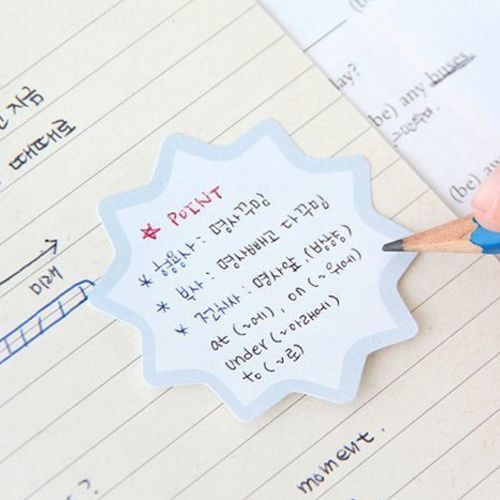 지금
때때로
미래
☆ POINT
* 형용사 : 명사꾸밈
* 부사 : 명사빼고 다 꾸밈
* 전치사 : 명사앞, (방향)
at (~에), on (~위에)
under (~아래에)
to (~로)
day?
(be) any buses
(be) any
(be) a
moment.